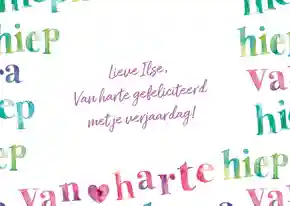 hiep
hiep
Lieve Ilse,
Van harte gefeliciteerd
met je verjaardag!
ra
va
hiep
hiep
hiep
hiep
van harte hiep
va